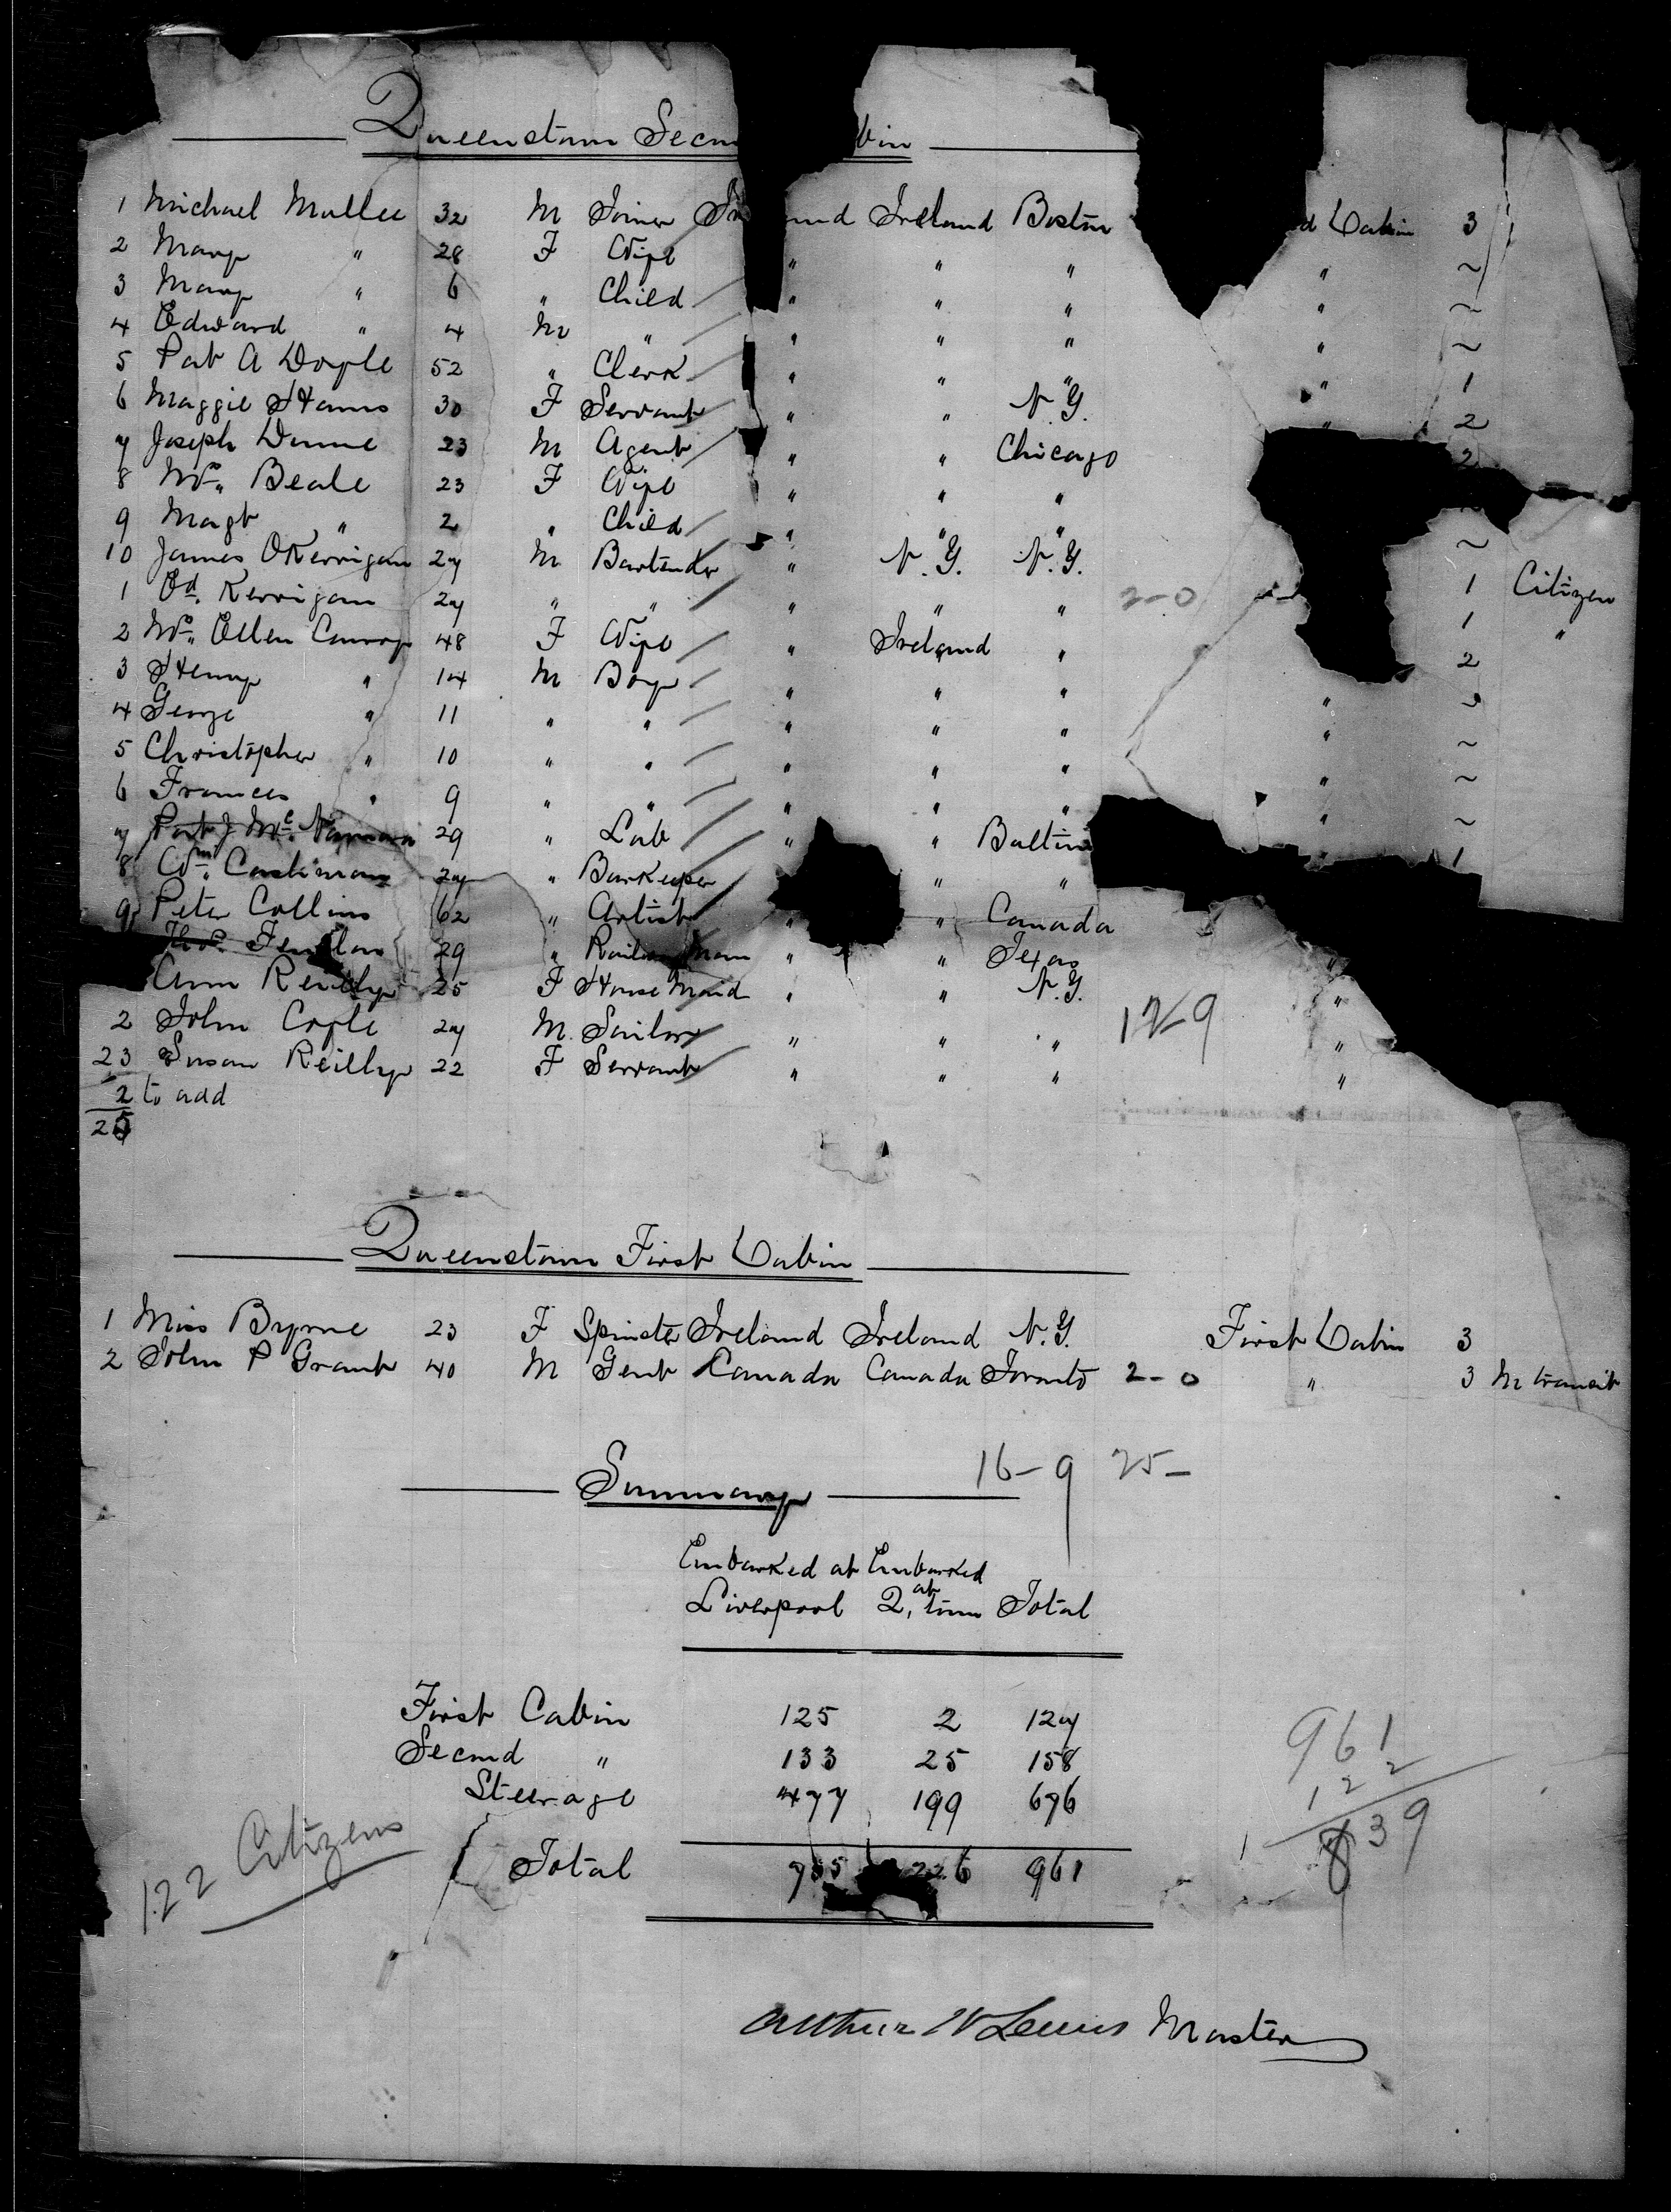 Queenstown Secon bin
1 Michael Mullee 32 M Joiner Ir and Ireland Boston d Cabin 3
2 Mary " 28 F Wife " " " " ~
3 Mary " 6 " Child " " " " ~
4 Edward " 4 M " " " " " ~
5 Pat A Doyle 52 " Clerk " " " " 1
6 Maggie Hams 30 F Servant " " N.Y. " 2
7 Joseph Dunne 23 M Agent " " Chicago 2
8 Mrs. Beale 23 F Wife " " "
9 Magt " 2 " Child " " " ~
10 James OKerrigan 27 M Bartender " N.Y. N.Y. 1 Citizen
1 Ed. Kerrigan 27 " " " " " 2-0 1 "
2 Mrs. Ellen Conroy 48 F Wife " Ireland " 2
3 Henry " 14 M Boy " " " " ~
4 George " 11 " " " " " " ~
5 Christopher " 10 " " " " " " ~
6 Frances " 9 " " " " " " ~
7 Pat J McNamara 29 " Lab " " Baltim 1
8 Wm. Cashman 27 " Barkeeper " "
9 Peter Collins 62 " Artist " " Canada
Thos. Fenelon 29 " Railway Man " " Texas "
Ann Reilly 25 F House Maid " " N.Y. "
2 John Coyle 27 M. Sailor " " " 12-9 "
23 Susan Reilly 22 F Servant " " " "
2 to add
25
Queenstown First Cabin
1 Miss Byrne 23 F Spinster Ireland Ireland N.Y. First Cabin 3
2 John P Grant 40 M Gent Canada Canada Toronto 2-0 " 3 In transit
16-9 25-
Summary
Embarked at Embarked
Liverpool at Q.town Total
First Cabin 125 2 127
Second " 133 25 158
Steerage 477 199 676
Total 735 226 961
961
122
839
122 Citizens
Arthur W Lewis Master